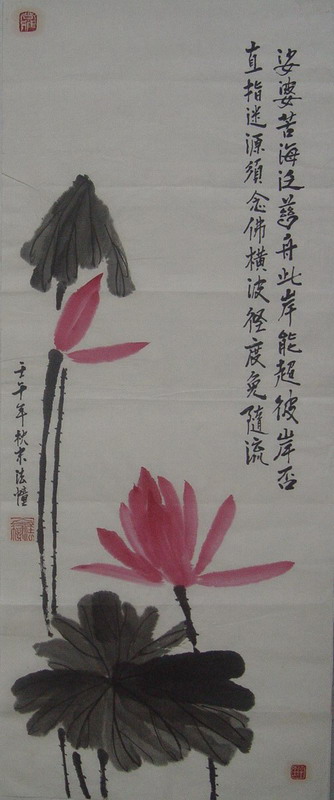 娑婆苦海泛慈舟此岸能超彼岸否
直指迷源須念佛橫波徑度免隨流
壬午年秋末法幢